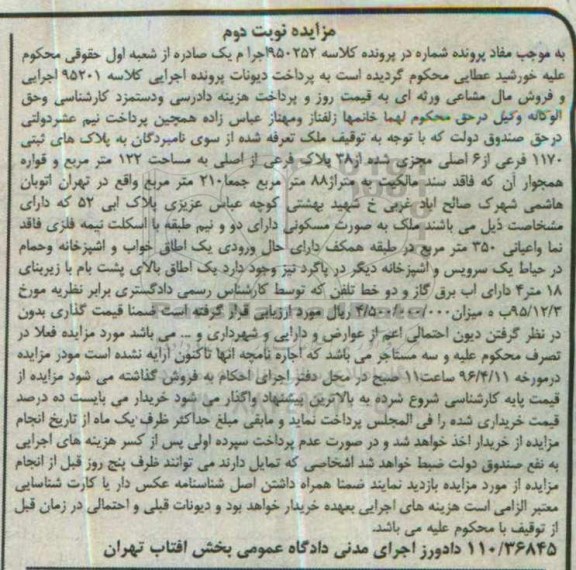 مزایده نوبت دوم
به موجب مفاد پرونده شماره در پرونده کلاسه ۹۵۰۲۵۲اجرا م یک صادره از شعبه اول حقوقی محکوم
علیه خورشید عطایی محکوم گردیده است به پرداخت دیونات پرونده اجرایی کلاسه ۹۵۲۰۱ اجرایی
و فروش مال مشاعی ورثه ای به قیمت روز و پرداخت هزینه دادرسی ودستمزد کارشناسی وحق
الوکاله وکیل درحق محکوم لهما خانمها زلفناز ومهناز عباس زاده همچین پرداخت نیم عشردولتی
درحق صندوق دولت که با توجه به توقیف ملک تعرفه شده از سوی نامبردگان به پلاک های ثبتی
۱۱۷۰ فرعی از۶ اصلی مجزی شده از۳۸ پلاک فرعی از اصلی به مساحت ۱۲۲ متر مربع و قواره
همجوار آن که فاقد سند مالکیت به متراز۸۸ متر مربع جمعا۲۱۰ متر مربع واقع در تهران اتوبان
هاشمی شهرک صالح اباد غربی خ شهید بهشتی کوچه عباس عزیزی پلاک ابی ۵۲ که دارای
مشخاصت ذیل می باشند ملک به صورت مسکونی دارای دو و نیم طبقه با اسکلت نیمه فلزی فاقد
نما واعیانی ۳۵۰ متر مربع در طبقه همکف دارای حال ورودی یک اطاق خواب و اشپزخانه وحمام
در حیاط یک سرویس و اشپزخانه دیگر در پاگرد نیز وجود دارد یک اطاق بالای پشت بام با زیربنای
۱۸ متر۴ دارای اب برق گاز و دو خط تلفن که توسط کارشناس رسمی دادگستری برابر نظریه مورخ
۹۵/۱۲/۳ب ه میزان۴/۵۰۰/۰۰۰/۰۰۰ ریال مورد ارزیابی قرار گرفته است ضمنا قیمت گذاری بدون
در نظر گرفتن دیون احتمالی اعم از عوارض و دارایی و شهرداری و ... می باشد مورد مزایده فعلا در
تصرف محکوم علیه و سه مستاجر می باشد که اجاره نامچه انها تاکنون ارایه نشده است مودر مزایده
درمورخه ۹۶/۴/۱۱ ساعت۱۱ صبح در محل دفتر اجرای احکام به فروش گذاشته می شود مزایده از
قیمت پایه کارشناسی شروع شرده به بالاترین پیشنهاد واگذار می شود خریدار می بایست ده درصد
قیمت خریداری شده را فی المجلس پرداخت نماید و مابقی مبلغ حداکثر ظرف یک ماه از تاریخ انجام
مزایده از خریدار اخذ خواهد شد و در صورت عدم پرداخت سپرده اولی پس از کسر هزینه های اجرایی
به نفع صندوق دولت ضبط خواهد شد اشخاصی که تمایل دارند می توانند ظرف پنج روز قبل از انجام
مزایده از مورد مزایده بازدید نمایند ضمنا همراه داشتن اصل شناسنامه عکس دار یا کارت شناسایی
معتبر الزامی است هزینه های اجرایی بعهده خریدار خواهد بود و دیونات قبلی و احتمالی در زمان قبل
از توقیف با محکوم علیه می باشد.
۱۱۰/۳۶۸۴۵ دادورز اجرای مدنی دادگاه عمومی بخش افتاب تهران